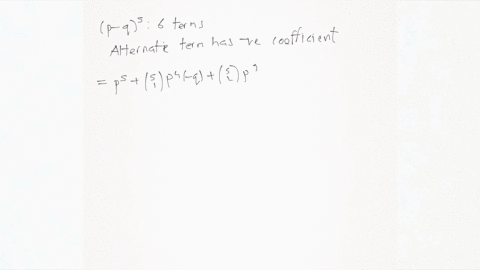 (p-q)⁵: 6 terms
Alternate term has -ve coefficient
= p⁵ + (5 1) p⁴(-q) + (5 2) p³